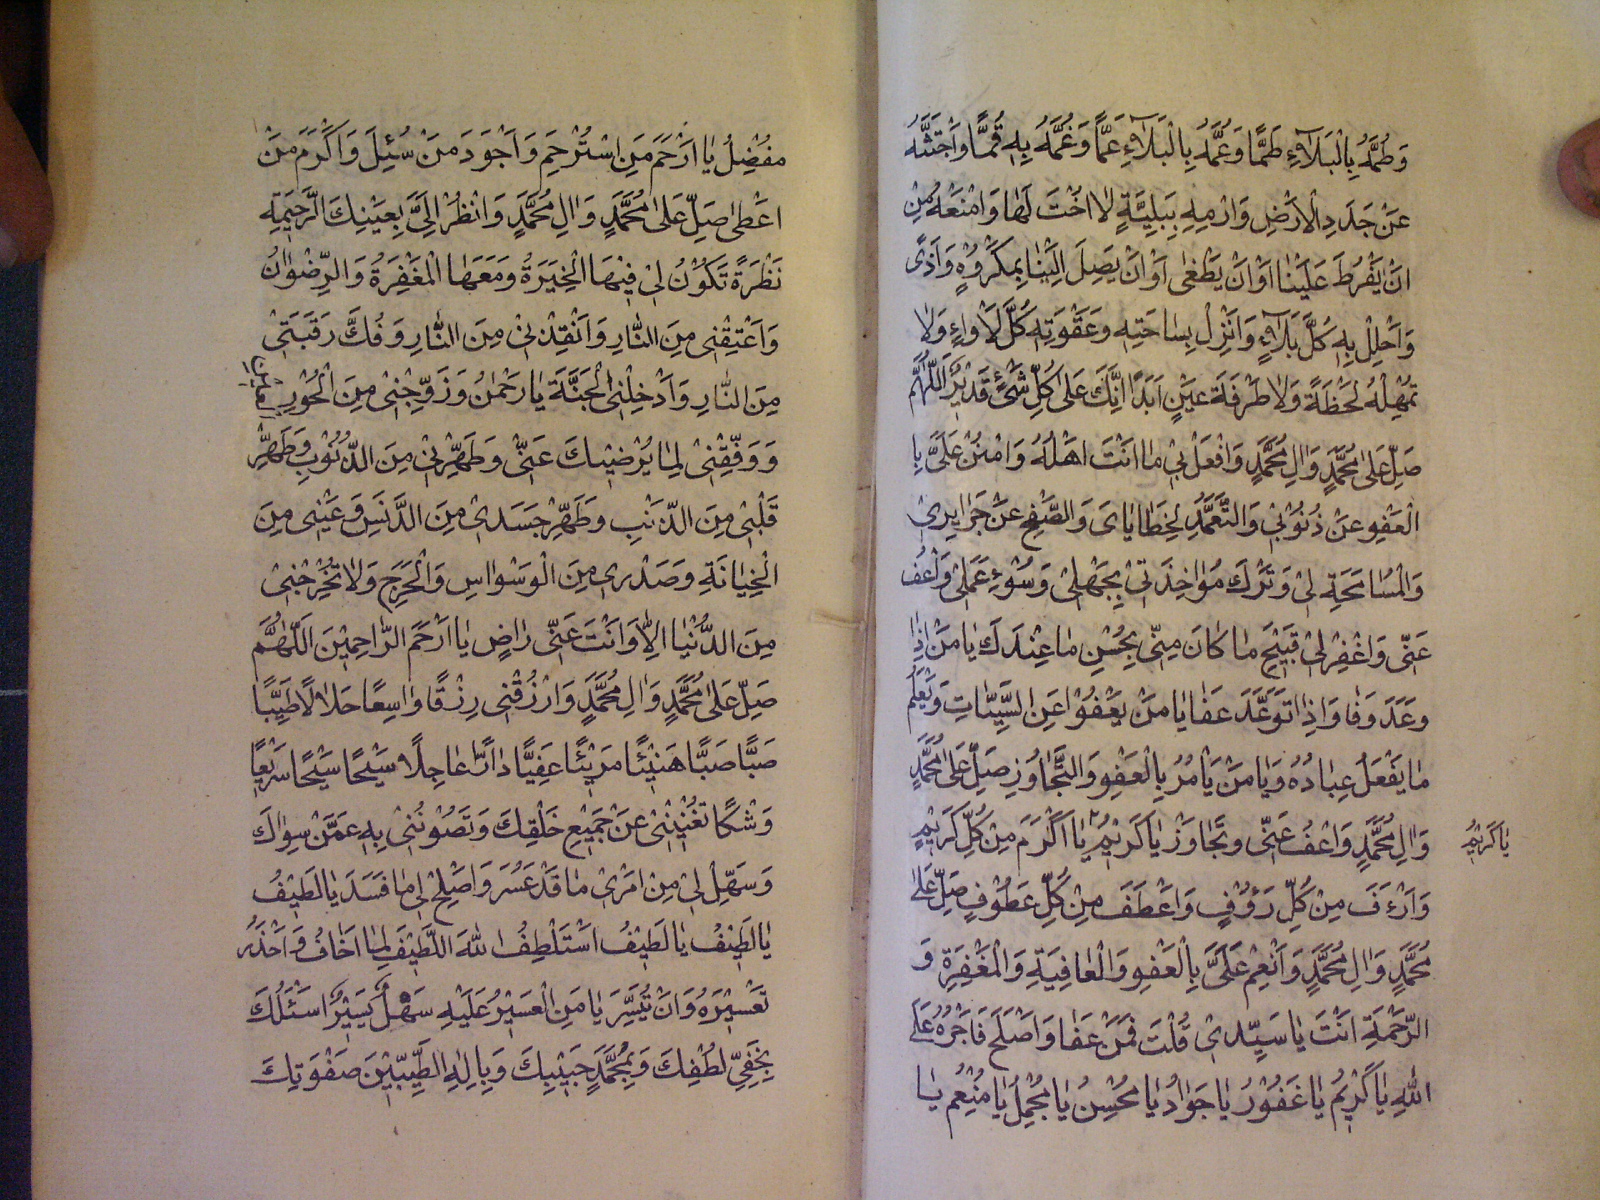 وَطُمَّهُ بِالْبَلَاءِ طَمًّا وَعُمَّهُ بِالْبَلَاءِ عَمًّا وَغُمَّهُ بِهِ قَمًّا وَاجْتَثَّهُ
عَنْ جَدَدِ الْاَرْضِ وَارْمِهِ بِبَلِيَّةٍ لَا اُخْتَ لَهَا وَامْنَعْهُ مِنْ
اَنْ يَفْرُطَ عَلَيْنَا اَوْ اَنْ يَطْغٰى اَوْ اَنْ يَصِلَ اِلَيْنَا بِمَكْرُوْهٍ وَاَذًى
وَاَحْلِلْ بِهِ كُلَّ بَلَاءٍ وَاَنْزِلْ بِسَاحَتِهِ وَعَقْوَتِهِ كُلَّ لَاْوَاءٍ وَلَا
تُمْهِلْهُ لَحْظَةً وَلَا طَرْفَةَ عَيْنٍ اَبَدًا اِنَّكَ عَلٰى كُلِّ شَيْءٍ قَدِيْرٌ اَللّٰهُمَّ
صَلِّ عَلٰى مُحَمَّدٍ وَاٰلِ مُحَمَّدٍ وَافْعَلْ بِيْ مَا اَنْتَ اَهْلُهُ وَامْنُنْ عَلَيَّ بِا
الْعَفْوِ عَنْ ذُنُوْبِيْ وَالتَّغَمُّدِ لِخَطَايَايَ وَالصَّفْحِ عَنْ جَرَايِرِيْ
وَالْمُسَامَحَةِ لِيْ وَتَرْكَ مُؤَاخِذَتِيْ بِجَهْلِيْ وَسُوْءِ عَمَلِيْ وَاعْفُ
عَنِّيْ وَاغْفِرْ لِيْ قَبِيْحَ مَا كَانَ مِنِّيْ بِحُسْنِ مَا عِنْدَكَ يَا مَنْ اِذَا
وَعَدَ وَفَا وَاِذَا تَوَعَّدَ عَفَا يَا مَنْ يَعْفُوْا عَنِ السَّيِّئَاتِ وَيَعْلَمُ
مَا يَفْعَلُ عِبَادُهُ وَيَا مَنْ يَاْمُرُ بِالْعَفْوِ وَالتَّجَاوُزِ صَلِّ عَلٰى مُحَمَّدٍ
وَاٰلِ مُحَمَّدٍ وَاعْفُ عَنِّيْ وَتَجَاوَزْ يَا كَرِيْمُ يَا اَكْرَمَ مِنْ كُلِّ كَرِيْمٍ
يَا كَرِيْمُ
وَاَرْءَفَ مِنْ كُلِّ رَؤُوْفٍ وَاَعْطَفَ مِنْ كُلِّ عَطُوْفٍ صَلِّ عَلٰى
مُحَمَّدٍ وَاٰلِ مُحَمَّدٍ وَاَنْعِمْ عَلَيَّ بِالْعَفْوِ وَالْعَافِيَةِ وَالْمَغْفِرَةِ وَ
الرَّحْمَةِ اَنْتَ يَا سَيِّدِيْ قُلْتَ فَمَنْ عَفَا وَاَصْلَحَ فَاَجْرُهُ عَلَى
اللهِ يَا كَرِيْمُ يَا غَفُوْرُ يَا جَوَادُ يَا مُحْسِنُ يَا مُجْمِلُ يَا مُنْعِمُ يَا
مُفْضِلُ يَا اَرْحَمَ مَنِ اسْتُرْحِمَ وَاَجْوَدَ مَنْ سُئِلَ وَاَكْرَمَ مَنْ
اَعْطٰى صَلِّ عَلٰى مُحَمَّدٍ وَاٰلِ مُحَمَّدٍ وَانْظُرْ اِلَيَّ بِعَيْنِكَ الرَّحِيْمَةِ
نَظْرَةً تَكُوْنُ لِيْ فِيْهَا الْخِيَرَةُ وَمَعَهَا الْمَغْفِرَةُ وَالرِّضْوَانُ
وَاَعْتِقْنِيْ مِنَ النَّارِ وَاَنْقِذْنِيْ مِنَ النَّارِ وَفُكَّ رَقَبَتِيْ
مِنَ النَّارِ وَاَدْخِلْنِي الْجَنَّةَ يَا رَحْمٰنُ وَزَوِّجْنِيْ مِنَ الْحُوْرِ
وَوَفِّقْنِيْ لِمَا يُرْضِيْكَ عَنِّيْ وَطَهِّرْنِيْ مِنَ الذُّنُوْبِ وَطَهِّرْ
قَلْبِيْ مِنَ الذَّنْبِ وَطَهِّرْ جَسَدِيْ مِنَ الدَّنَسِ وَعَيْنِيْ مِنَ
الْخِيَانَةِ وَصَدْرِيْ مِنَ الْوَسْوَاسِ وَالْحَرَجِ وَلَا تُخْرِجْنِيْ
مِنَ الدُّنْيَا اِلَّا وَاَنْتَ عَنِّيْ رَاضٍ يَا اَرْحَمَ الرَّاحِمِيْنَ اَللّٰهُمَّ
صَلِّ عَلٰى مُحَمَّدٍ وَاٰلِ مُحَمَّدٍ وَارْزُقْنِيْ رِزْقًا وَاسِعًا حَلَالًا طَيِّبًا
صَبًّا صَبًّا هَنِيْئًا مَرِيْئًا عَفِيًّا دَارًّا عَاجِلًا سَيْحًا سَيْحًا سَرِيْعًا
وَشْكًا تُغْنِيْنِيْ عَنْ جَمِيْعِ خَلْقِكَ وَتَصُوْنُنِيْ بِهِ عَمَّنْ سِوَاكَ
وَسَهِّلْ لِيْ مِنْ اَمْرِيْ مَا قَدْ عَسُرَ وَاَصْلِحْ لِيْ مَا فَسَدَ يَا لَطِيْفُ
يَا لَطِيْفُ يَا لَطِيْفُ اَسْتَلْطِفُ اللهَ اللَّطِيْفَ لِمَا اَخَافُ وَاَحْذَرُ
تَعْسِيْرَهُ وَاَنْ تُيَسِّرَ يَا مَنِ الْعَسِيْرُ عَلَيْهِ سَهْلٌ يَسِيْرٌ اَسْئَلُكَ
بِخَفِيِّ لُطْفِكَ وَبِمُحَمَّدٍ حَبِيْبِكَ وَبِاٰلِهِ الطَّيِّبِيْنَ صَفْوَتِكَ